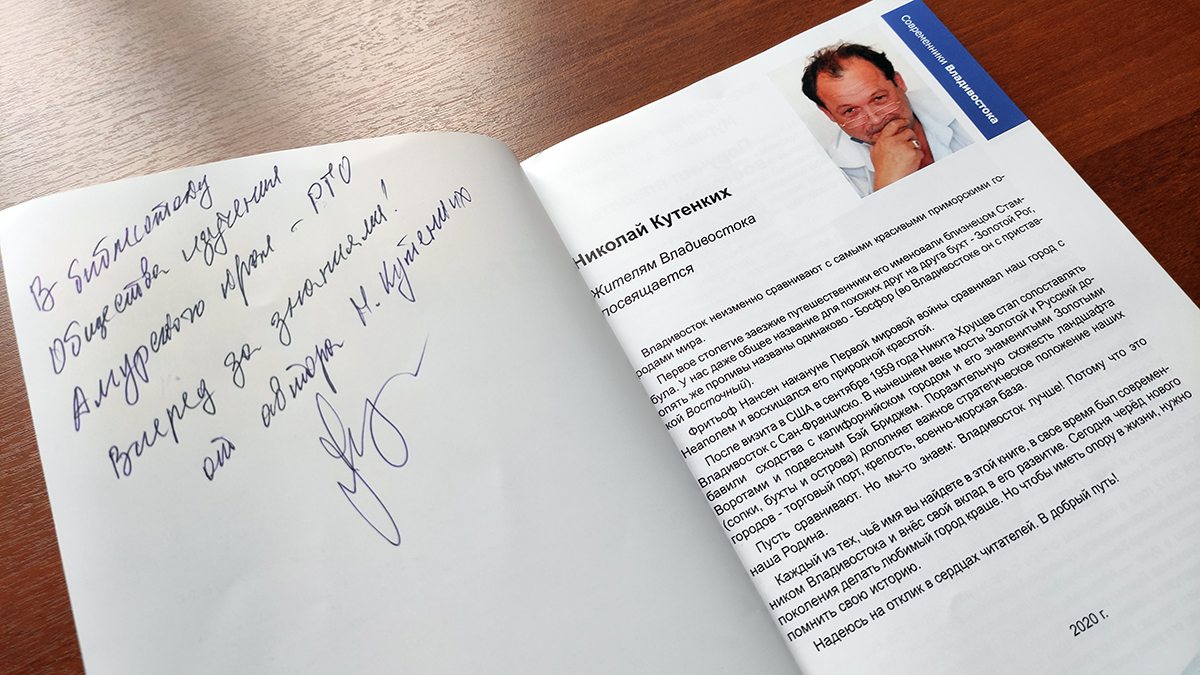 В библиотеку
Общества изучения
Амурского края - РГО
Вперед за знаниями!
от автора Н. Кутенких
Современники Владивостока
Николай Кутенких
Жителям Владивостока
посвящается
Владивосток неизменно сравнивают с самыми красивыми приморскими го-
родами мира.
Первое столетие заезжие путешественники его именовали близнецом Стам-
була. У нас даже общее название для похожих друг на друга бухт - Золотой Рог,
опять же проливы названы одинаково - Босфор (во Владивостоке он с пристав-
кой Восточный).
Фритьоф Нансен накануне Первой мировой войны сравнивал наш город с
Неаполем и восхищался его природной красотой.
После визита в США в сентябре 1959 года Никита Хрущев стал сопоставлять
Владивосток с Сан-Франциско. В нынешнем веке мосты Золотой и Русский до-
бавили сходства с калифорнийским городом и его знаменитыми Золотыми
Воротами и подвесным Бэй Бриджем. Поразительную схожесть ландшафта
(сопки, бухты и острова) дополняет важное стратегическое положение наших
городов - торговый порт, крепость, военно-морская база.
Пусть сравнивают. Но мы-то знаем: Владивосток лучше! Потому что это
наша Родина.
Каждый из тех, чьё имя вы найдете в этой книге, в свое время был современ-
ником Владивостока и внёс свой вклад в его развитие. Сегодня черёд нового
поколения делать любимый город краше. Но чтобы иметь опору в жизни, нужно
помнить свою историю.
Надеюсь на отклик в сердцах читателей. В добрый путь!
2020 г.